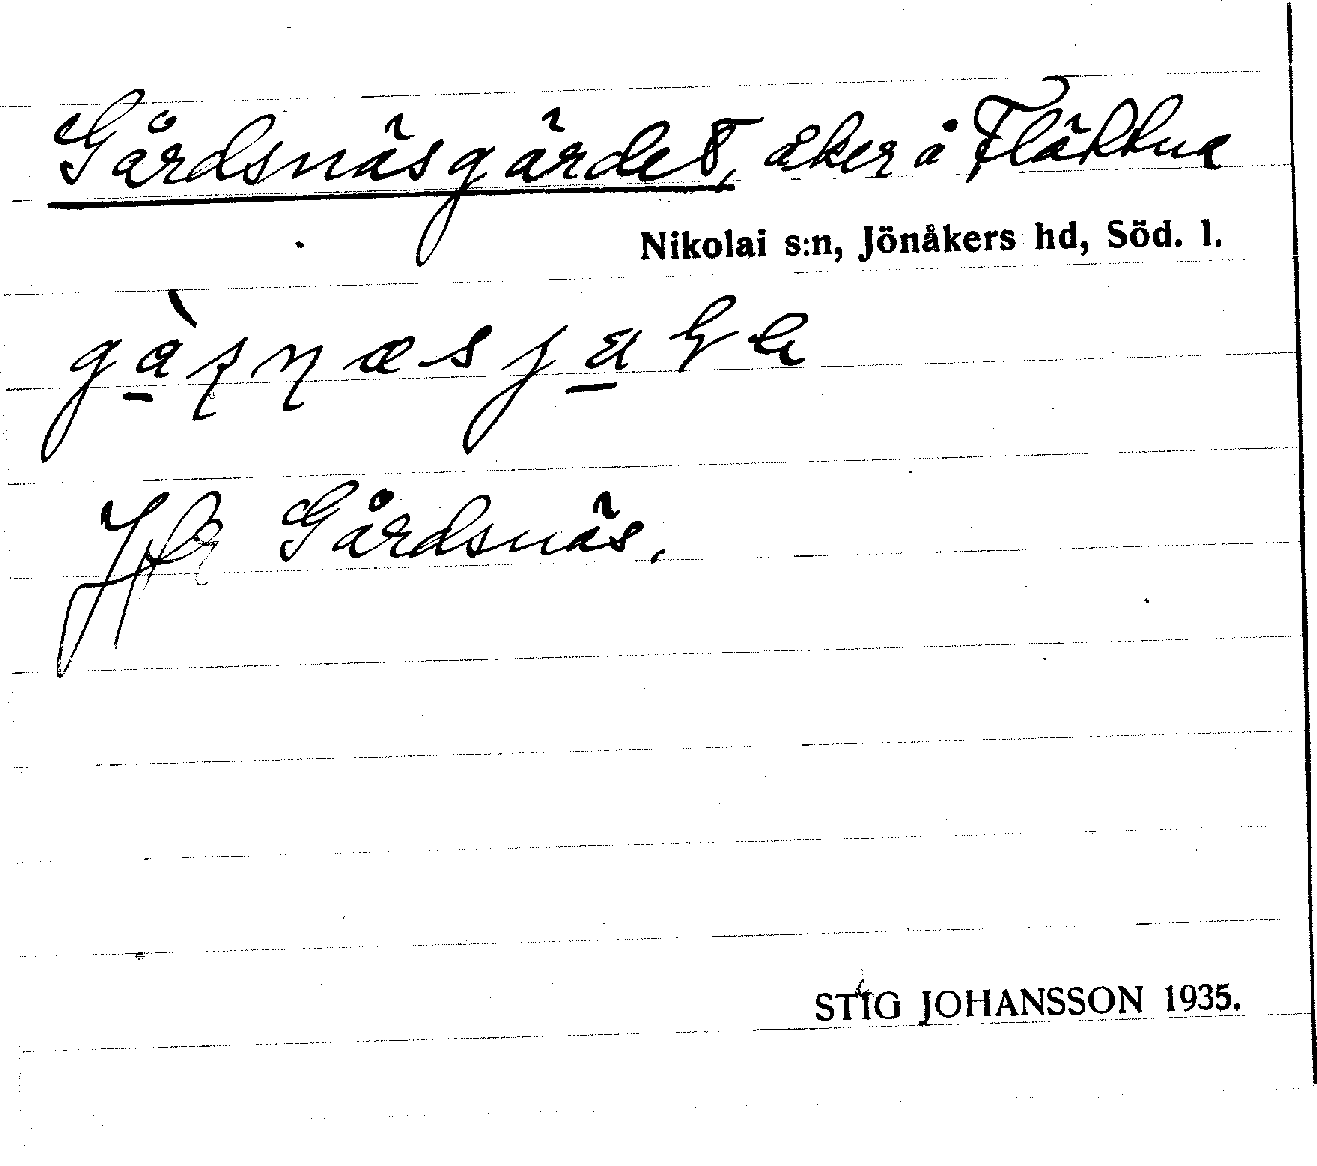 Gårdsnäsgärdet, åker å Fläkkna
Nikolai s:n, Jönåkers hd, Söd. l.
Jfr Gårdsnäs.
STIG JOHANSSON 1935.